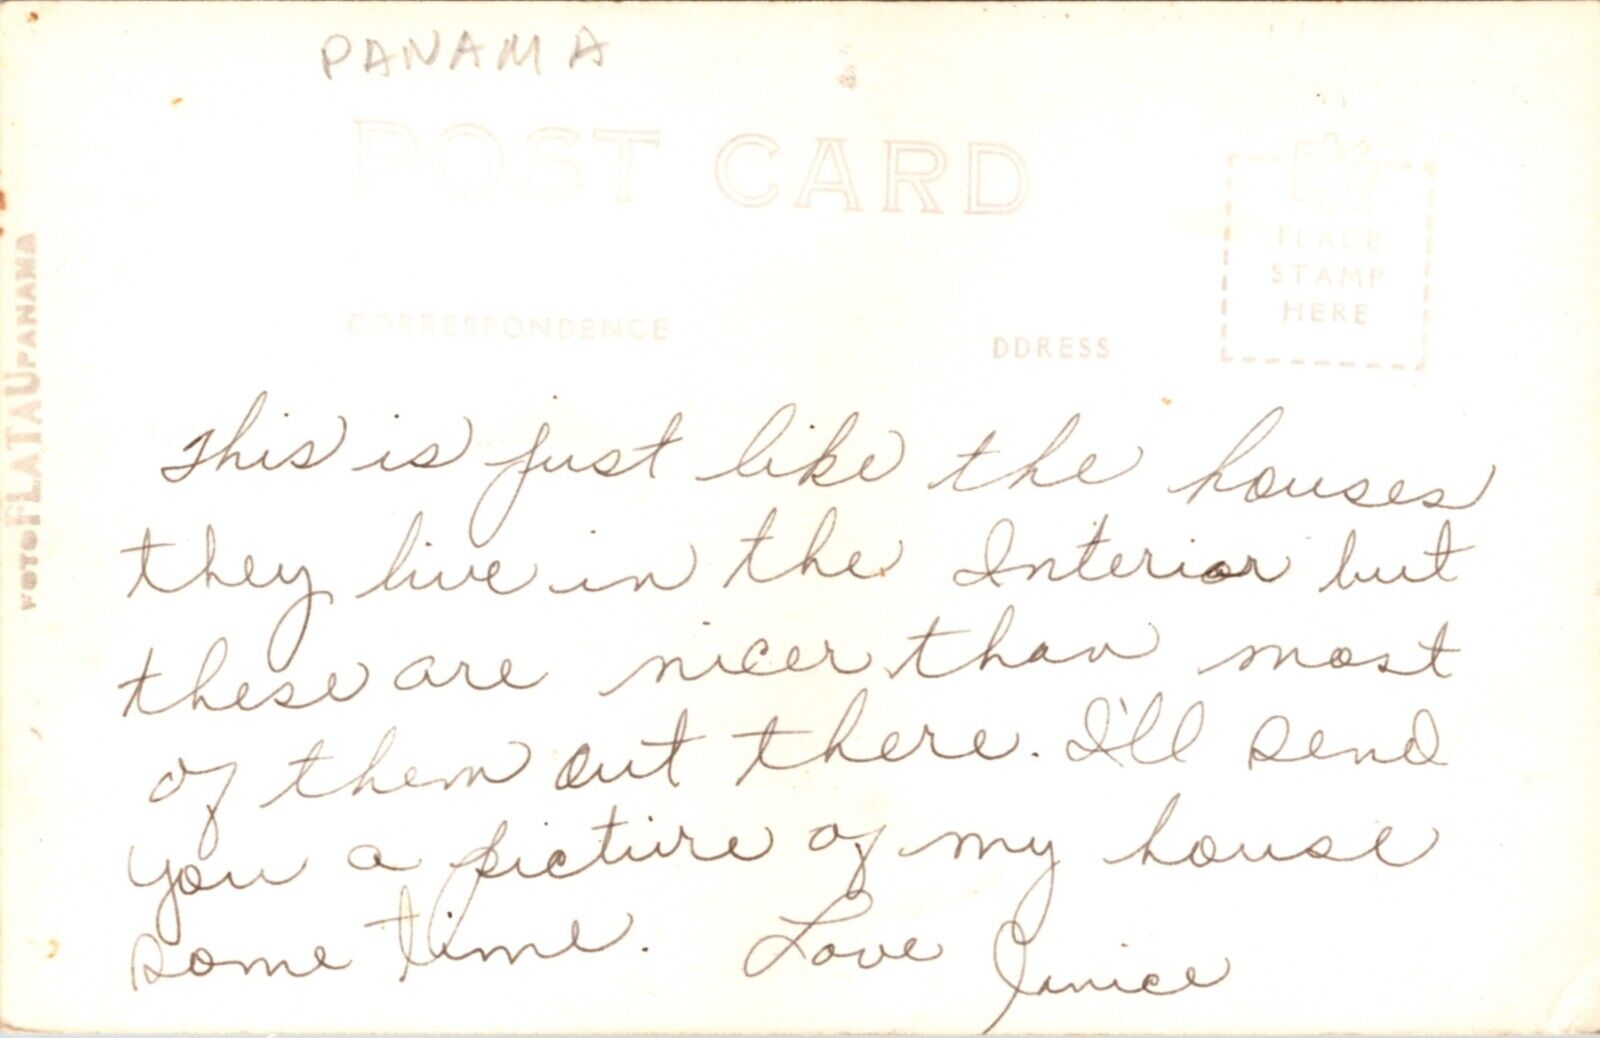 PANAMA
POST CARD
PLACE
STAMP
HERE
CORRESPONDENCE
DDRESS
FOTO FLATAU PANAMA
This is just like the houses
they live in the Interior but
these are nicer than most
of them out there. I'll send
you a picture of my house
some time. Love Janice